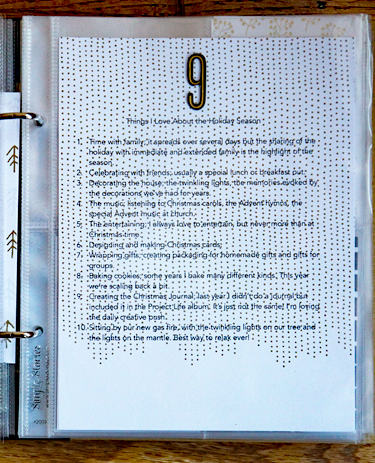 9
Things I Love About the Holiday Season
1. Time with family, it spreads over several days but the sharing of the
holiday with immediate and extended family is the highlight of the
season.
2. Celebrating with friends, usually a special lunch or breakfast out.
3. Decorating the house, the twinkling lights, the memories evoked by
the decorations we've had for years.
4. The music, listening to Christmas carols, the Advent Hymns, the
special Advent music at church.
5. The entertaining, I always love to entertain, but never more than at
Christmas time.
6. Designing and making Christmas cards.
7. Wrapping gifts, creating packaging for homemade gifts and gifts for
groups.
8. Baking cookies, some years I bake many different kinds. This year
we're scaling back a bit.
9. Creating the Christmas Journal, last year I didn't do a journal but
included it in the Project Life album. It's just not the same! I'm loving
the daily creative push.
10. Sitting by our new gas fire, with the twinkling lights on our tree and
the lights on the mantle. Best way to relax ever!
Simple Stories